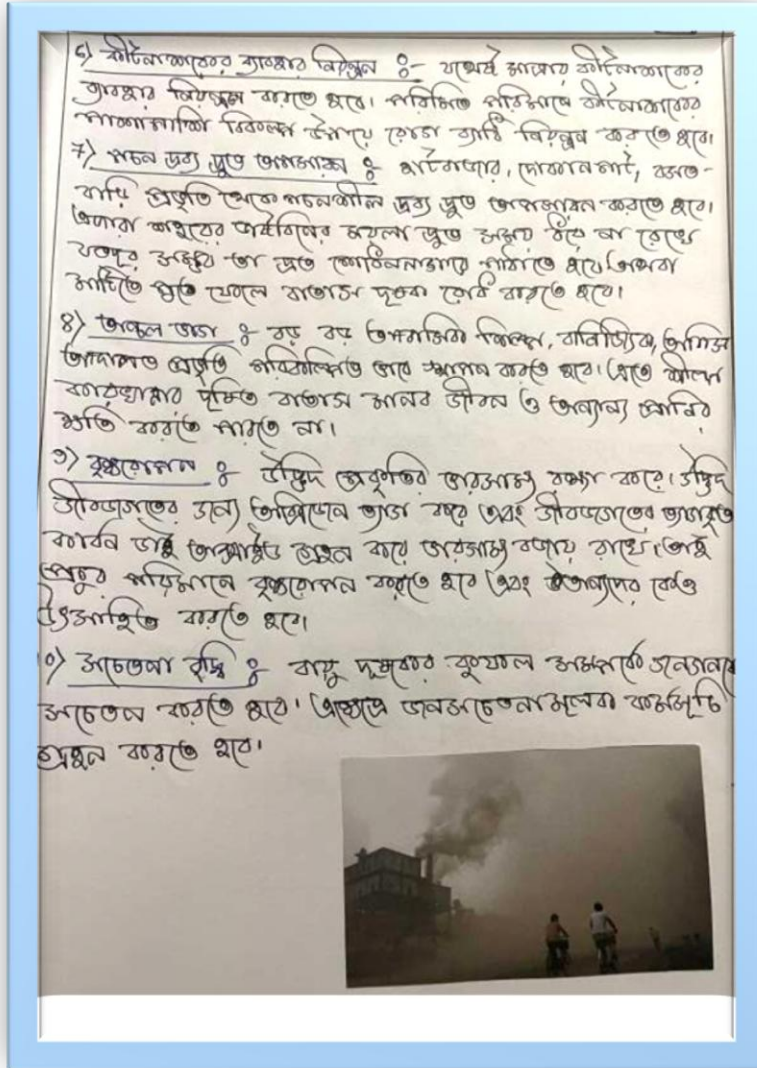 ৬) কীটনাশকের ব্যবহার নিয়ন্ত্রন ঃ- যথেষ্ট মাত্রায় কীটনাশকের
ব্যবহার নিয়ন্ত্রন করতে হবে। পরিমিত পরিমানে কীটনাশকের
পাশাপাশি বিকল্প উপায়ে রোগ ব্যাধি নিয়ন্ত্রন করতে হবে।
৭) পচন দ্রব্য দ্রুত অপসারন ঃ হাটবাজার, দোকানপাট, বসত-
বাড়ি প্রভৃতি থেকে পচনশীল দ্রব্য দ্রুত অপসারন করতে হবে।
শহরের ময়লা দ্রুত না রেখে
যতদূর সম্ভব তা দ্রুত পাঠাতে হবে অথবা
মাটিতে পুতে ফেলে বাতাস দূষন রোধ করতে হবে।
৪) অঞ্চল ভাগ ঃ বড় বড় শিল্প, বানিজ্যিক, অফিস
আদালত প্রভৃতি পরিকল্পিত ভাবে স্থাপন করতে হবে। এতে শিল্প
কারখানার দূষিত বাতাস মানব জীবন ও অন্যান্য প্রানির
ক্ষতি করতে পারতে না।
৯) বৃক্ষরোপন ঃ উদ্ভিদ প্রকৃতির ভারসাম্য রক্ষা করে। উদ্ভিদ
জীবজগতের জন্যে অক্সিজেন ত্যাগ করে এবং জীবজগতের ত্যাগকৃত
কার্বন ডাই অক্সাইড গ্রহন করে ভারসাম্য বজায় রাখে। তাই
প্রচুর পরিমানে বৃক্ষরোপন করতে হবে এবং অন্যদের কেও
উৎসাহিত করতে হবে।
১০) সচেতনা বৃদ্ধি ঃ বায়ু দূষনের কুফল সম্পর্কে জনগনকে
সচেতন করতে হবে। এক্ষেত্রে জনসচেতনামূলক কর্মসূচি
গ্রহন করতে হবে।